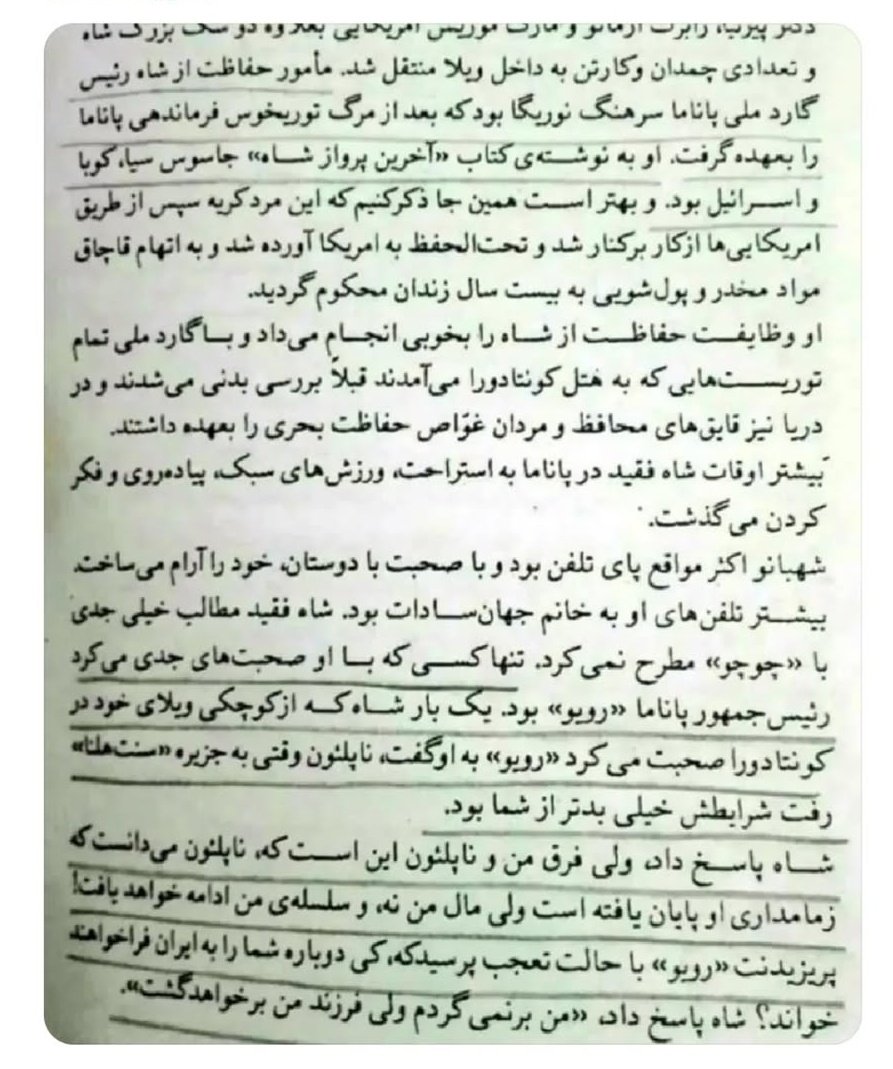 دکتر پیرنیا، رابرت آرمائو و مارک موریس امریکایی بعلاوه دو سگ بزرگ شاه
و تعدادی چمدان وکارتن به داخل ویلا منتقل شد. مأمور حفاظت از شاه رئیس
گارد ملی پاناما سرهنگ نوریگا بود که بعد از مرگ توریخوس فرماندهی پاناما
را بعهده گرفت. او به نوشته‌ی کتاب «آخرین پرواز شاه» جاسوس سیا، کوبا
و اسرائیل بود. و بهتر است همین جا ذکر کنیم که این مرد کریه سپس از طریق
امریکایی‌ها از کار برکنار شد و تحت‌الحفظ به امریکا آورده شد و به اتهام قاچاق
مواد مخدر و پول‌شویی به بیست سال زندان محکوم گردید.
او وظایفت حفاظت از شاه را بخوبی انجام می‌داد و با گارد ملی تمام
توریست‌هایی که به هتل کونتادورا می‌آمدند قبلاً بررسی بدنی می‌شدند و در
دریا نیز قایق‌های محافظ و مردان غوّاص حفاظت بحری را بعهده داشتند.
بیشتر اوقات شاه فقید در پاناما به استراحت، ورزش‌های سبک، پیاده‌روی و فکر
کردن می‌گذشت.
شهبانو اکثر مواقع پای تلفن بود و با صحبت با دوستان، خود را آرام می‌ساخت.
بیشتر تلفن‌های او به خانم جهان‌سادات بود. شاه فقید مطالب خیلی جدی
با «چوچو» مطرح نمی‌کرد. تنها کسی که با او صحبت‌های جدی می‌کرد
رئیس‌جمهور پاناما «رویو» بود. یک بار شاه که از کوچکی ویلای خود در
کونتادورا صحبت می‌کرد «رویو» به او گفت، ناپلئون وقتی به جزیره «سنت‌هلنا»
رفت شرایطش خیلی بدتر از شما بود.
شاه پاسخ داد، ولی فرق من و ناپلئون این است که، ناپلئون می‌دانست که
زمامداری او پایان یافته است ولی مال من نه، و سلسله‌ی من ادامه خواهد یافت!
پریزیدنت «رویو» با حالت تعجب پرسید که، کی دوباره شما را به ایران فراخواهند
خواند؟ شاه پاسخ داد، «من برنمی‌گردم ولی فرزند من برخواهد گشت».